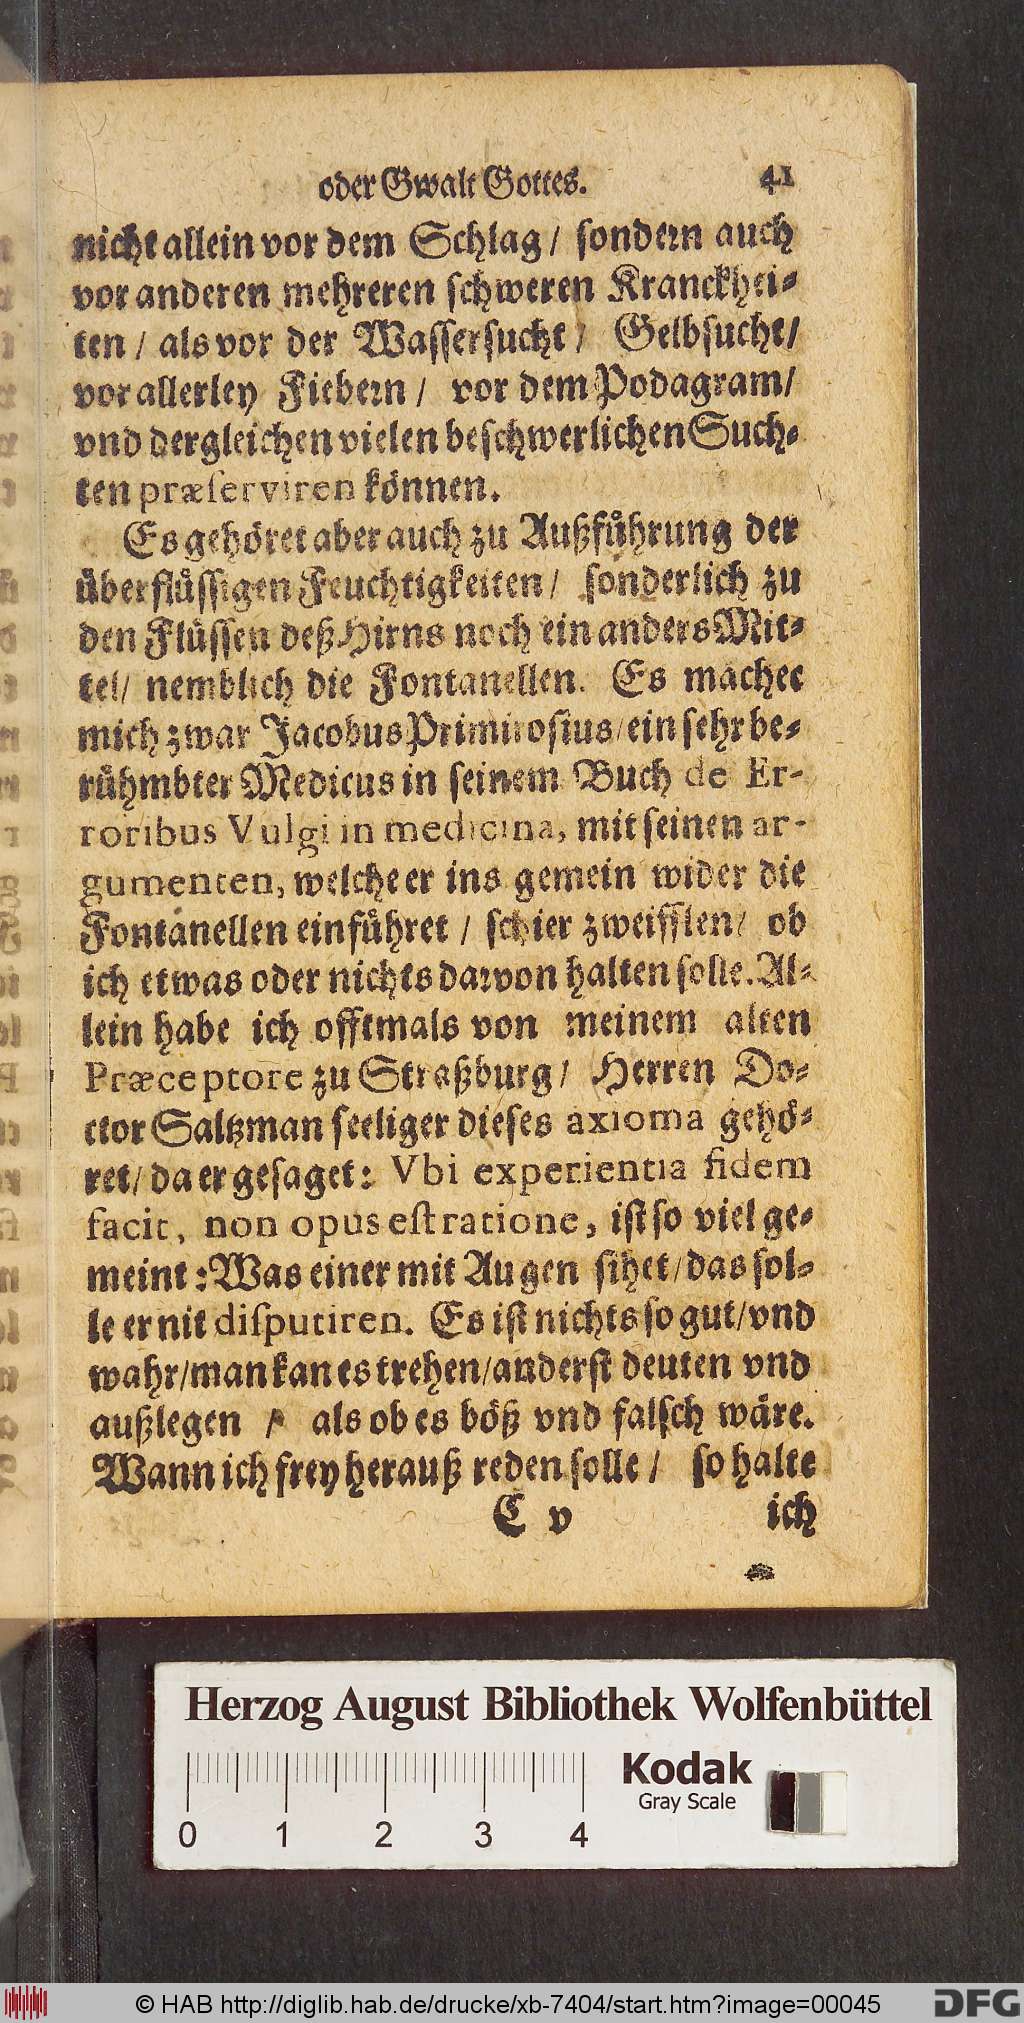 oder Gwalt Gottes. 41
nicht allein vor dem Schlag / sondern auch
vor anderen mehreren schweren Kranckhei-
ten / als vor der Wassersucht / Gelbsucht /
vor allerley Fiebern / vor dem Podagram /
vnd dergleichen vielen beschwerlichen Such-
ten præserviren können.
Es gehöret aber auch zu Außführung der
überflüssigen Feuchtigkeiten / sonderlich zu
den Flüssen deß Hirns noch ein anders Mit-
tel / nemblich die Fontanellen. Es machet
mich zwar Jacobus Primirosius / ein sehr be-
rühmbter Medicus in seinem Buch de Er-
roribus Vulgi in medicina, mit seinen ar-
gumenten, welche er ins gemein wider die
Fontanellen einführet / schier zweifflen / ob
ich etwas oder nichts darvon halten solle. Al-
lein habe ich offtmals von meinem alten
Præceptore zu Straßburg / Herren Do-
ctor Saltzman seeliger dieses axioma gehö-
ret / da er gesaget: Vbi experientia fidem
facit, non opus est ratione, ist so viel ge-
meint: Was einer mit Augen sihet / das sol-
le er nit disputiren. Es ist nichts so gut / vnd
wahr / man kan es trehen / anderst deuten vnd
außlegen / als ob es böß vnd falsch wäre.
Wann ich frey herauß reden solle / so halte
C v ich
Herzog August Bibliothek Wolfenbüttel
Kodak
Gray Scale
0 1 2 3 4
© HAB http://diglib.hab.de/drucke/xb-7404/start.htm?image=00045
DFG